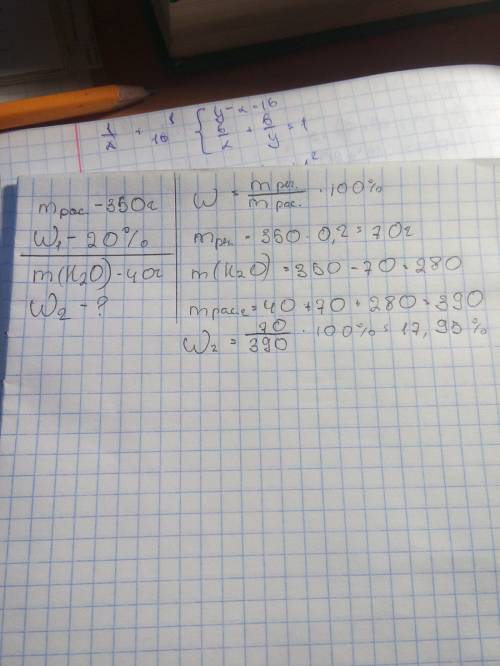 1/x + 1/16 { y - x = 16
6/x + 6/y = 1
2
mрас. - 350г
W₁ - 20%
m(H₂O) - 40г
W₂ - ?
W = mр.в./mрас. · 100%
mр.в. - 350 · 0,2 = 70г
m(H₂O) = 350 - 70 = 280
mрас₂ = 40 + 70 + 280 = 390
W₂ = 70/390 · 100% = 17,95%